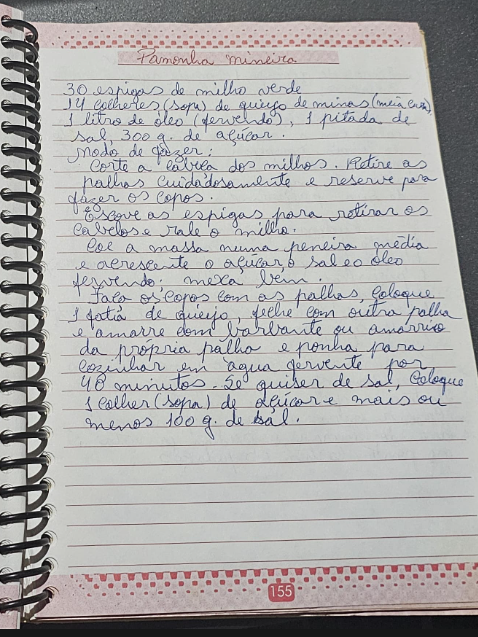 Pamonha mineira
30 espigas de milho verde
14 colheres (sopa) de queijo de minas (meia cura)
1 litro de óleo (fervendo), 1 pitada de
sal, 300 g. de açúcar.
Modo de fazer:
Corte a cabeça dos milhos. Retire as
palhas cuidadosamente e reserve para
fazer os copos.
Escove as espigas para retirar os
cabelos e rale o milho.
Coe a massa numa peneira média
e acrescente o açúcar, o sal e o óleo
fervendo; mexa bem.
Faça os copos com as palhas, coloque
1 fatia de queijo, feche com outra palha
e amarre com barbante ou amarrio
da própria palha e ponha para
cozinhar em agua fervente por
40 minutos. Se quiser de sal, coloque
1 colher (sopa) de açúcar e mais ou
menos 100 g. de sal.
155